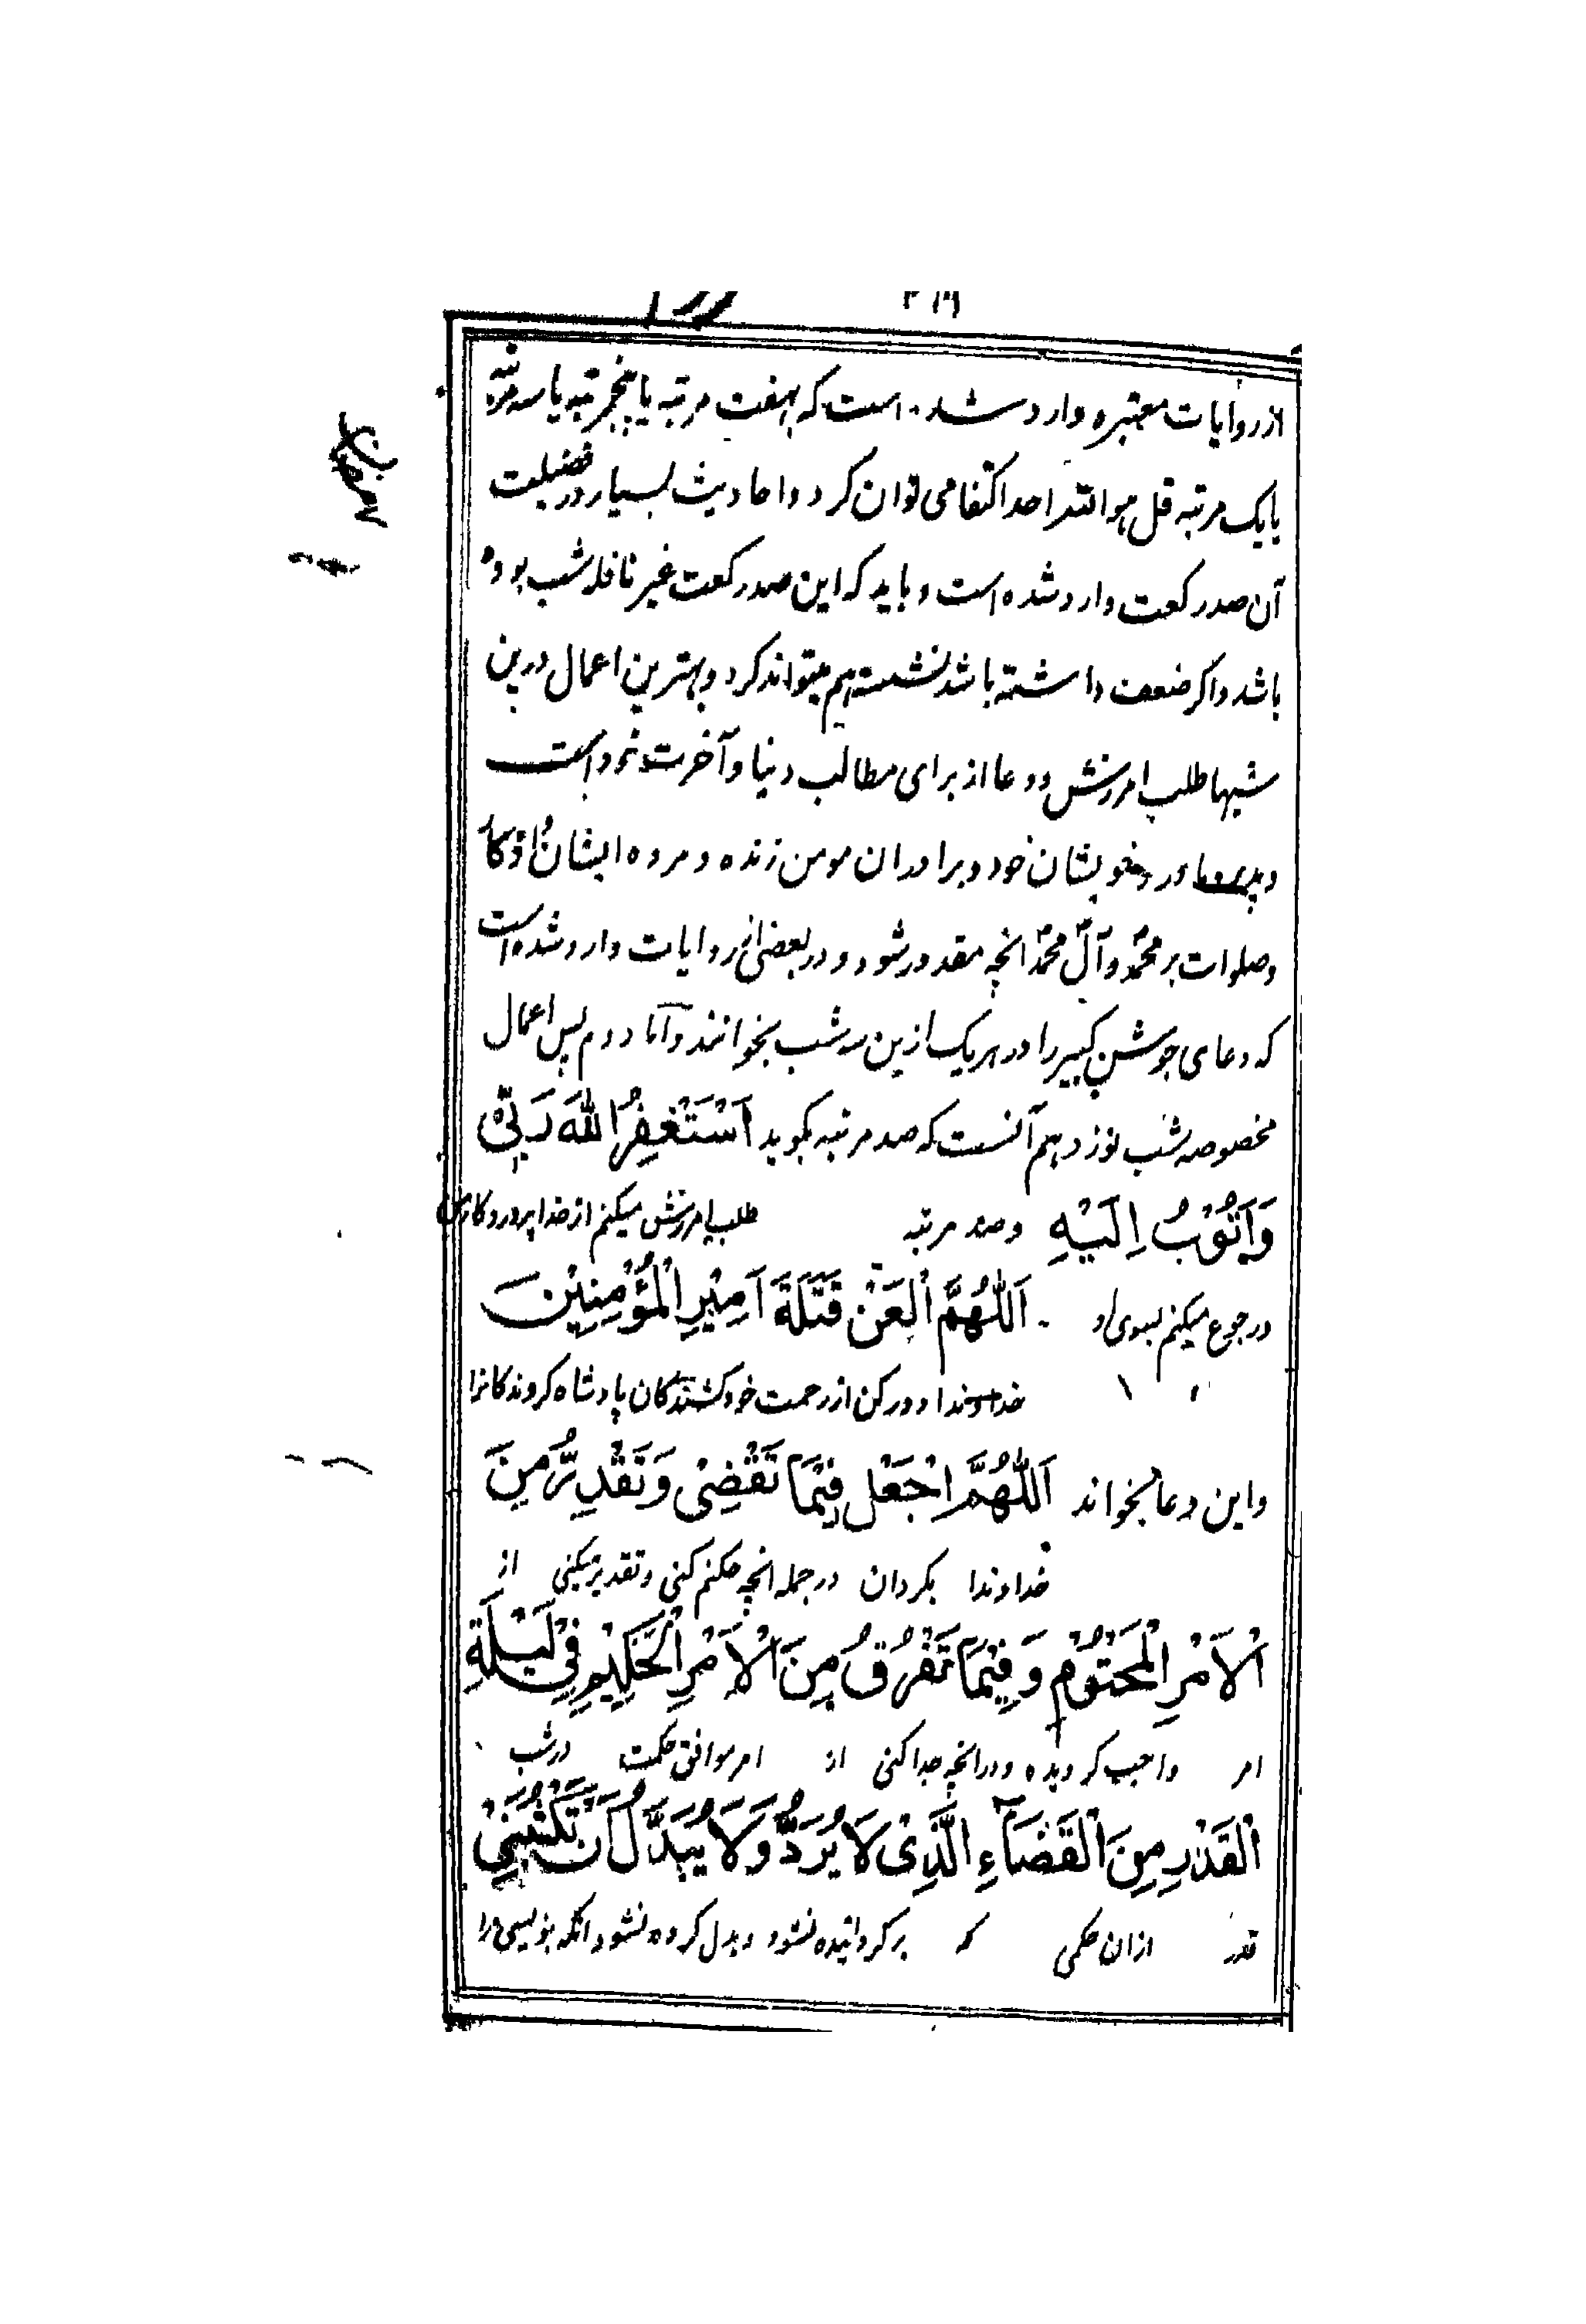 از روایات معتبره وارد شده است که بهفت مرتبه یا پنجمرتبه یا سه مرتبه
یا یک مرتبه قل هو الله احد اکتفا می توان کرد و احادیث بسیار در فضیلت
آن صد رکعت وارد شده است و باید که این صد رکعت غیر نافله شب بوده
باشد و اکر ضعف داشته باشد نشسته هم میتواند کرد و بهترین اعمال درین
شبها طلب امرزش و دعا از برای مطالب دنیا و آخرت خود است
و پدر و مادر و خویشان خود و برادران مومن زنده و مرده ایشان و اذکار
و صلوات بر محمد و آل محمد انچه مقدور شود و در بعضی از روایات وارد شده است
که دعای جوشن کبیر را در هر یک ازین سه شب بخوانند و آما دوم پس اعمال
مخصوصه شب نوزدهم آنست که صد مرتبه بکوید اَسْتَغْفِرُ اللهَ رَبِّیْ
وَاَتُوْبُ اِلَیْهِ وصد مرتبه طلب امرزش میکنم از خدا پروردکار من
و رجوع میکنم بسوی او اَللّٰهُمَّ الْعَنْ قَتَلَةَ اَمِیْرِ الْمُؤْمِنِیْنَ
خداوندا دور کن از رحمت خود کشندکان پادشاه کروندکانرا
واین دعا بخواند اَللّٰهُمَّ اجْعَلْ فِیْمَا تَقْضِیْ وَتَقْدِرُ مِنَ
خداوندا بکردان در جمله انچه حکم کنی و تقدیر میکنی از
الْاَمْرِ الْمَحْتُوْمِ وَفِیْمَا تَفْرُقُ مِنَ الْاَمْرِ الْحَکِیْمِ فِیْ لَیْلَةِ
امر واجب کردیده و در انچه جدا کنی از امر موافق حکمت در شب
الْقَدْرِ مِنَ الْقَضَاءِ الَّذِیْ لَا یُرَدُّ وَلَا یُبَدَّلُ اَنْ تَکْتُبَنِیْ
قدر ازان حکمی که برکردانیده نشود و بدل کرده نشود انکه بنویسی مرا